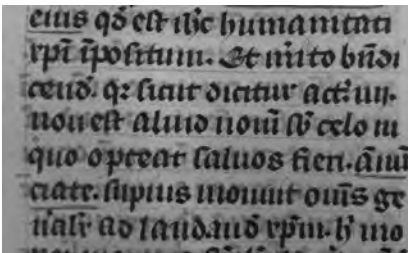 eius qð est ihc humanitati
xpī īpositum. Et m̄ito bn̄di
cend̄. qꝛ sicut dicitur act. iiii.
non est aliud nom̄ sb̄ celo in
quo opteat saluos fieri. ān̄ū
ciate. supius mouit om̄s ge
n̄alr̄ ad laudand̄ xpm̄. h̄ mo